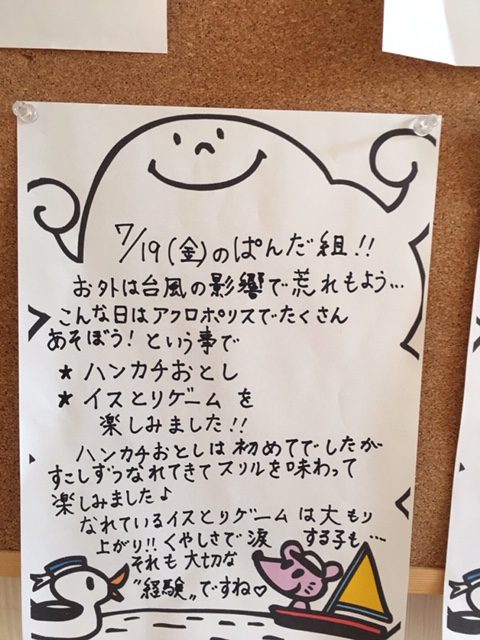 7/19(金)のぱんだ組!!
お外は台風の影響で荒れもよう…
こんな日はアクロポリスでたくさん
あそぼう!という事で
★ ハンカチおとし
★ イスとりゲーム を
楽しみました!!
ハンカチおとしは初めてでしたが
すこしずつなれてきてスリルを味わって
楽しみました♪
なれているイスとりゲームは大もり
上がり!!くやしさで涙 する子も…
それも大切な
"経験"ですね♡